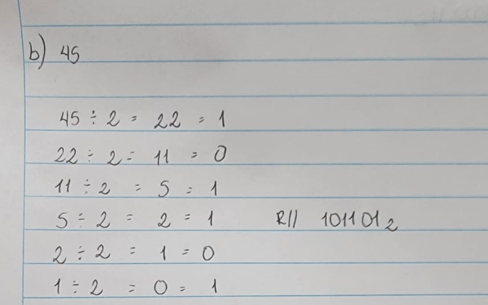 b) 45
45 ÷ 2 = 22 = 1
22 ÷ 2 = 11 = 0
11 ÷ 2 = 5 = 1
5 ÷ 2 = 2 = 1 R// 101101₂
2 ÷ 2 = 1 = 0
1 ÷ 2 = 0 = 1